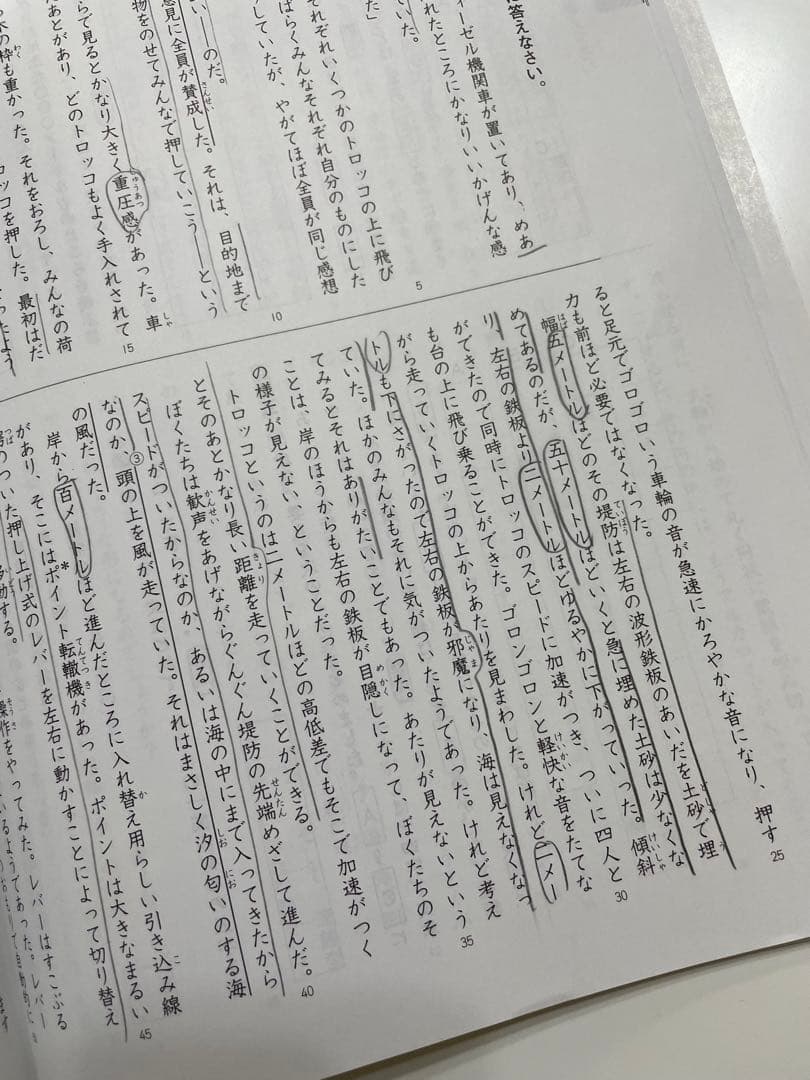 に答えなさい。
ィーゼル機関車が置いてあり、めあ
れたところにかなりいいかげんな感
ていた。
た」
それぞれいくつかのトロッコの上に飛び
ばらくみんなそれぞれ自分のものにした
していたが、やがてほぼ全員が同じ感想
い――のだ。
意見に全員が賛成した。それは、目的地まで
物をのせてみんなで押していこう――という
らで見るとかなり大きく重圧感があった。車
あとがあり、どのトロッコもよく手入れされて
の枠も重かった。それをおろし、みんなの荷
ロッコを押した。最初はだ
5
10
15
ると足元でゴロゴロいう車輪の音が急速にかろやかな音になり、押す
力も前ほど必要ではなくなった。
幅五メートルほどのその堤防は左右の波形鉄板のあいだを土砂で埋
めてあるのだが、五十メートルほどいくと急に埋めた土砂は少なくな
り、左右の鉄板より二メートルほどゆるやかに下がっていった。傾斜
ができたので同時にトロッコのスピードに加速がつき、ついに四人と
も台の上に飛び乗ることができた。ゴロンゴロンと軽快な音をたてな
がら走っていくトロッコの上からあたりを見まわした。けれど二メー
トルも下にさがったので左右の鉄板が邪魔になり、海は見えなくなっ
ていた。ほかのみんなもそれに気がついたようであった。けれど考え
てみるとそれはありがたいことでもあった。あたりが見えないという
ことは、岸のほうからも左右の鉄板が目隠しになって、ぼくたちのそ
の様子が見えない、ということだった。
トロッコというのは二メートルほどの高低差でもそこで加速がつく
とそのあとかなり長い距離を走っていくことができる。
ぼくたちは歓声をあげながらぐんぐん堤防の先端めざして進んだ。
スピードがついたからなのか、あるいは海の中にまで入ってきたから
なのか、③頭の上を風が走っていた。それはまさしく汐の匂いのする海
の風だった。
岸から百メートルほど進んだところに入れ替え用らしい引き込み線
があり、そこにはポイント*転轍機があった。ポイントは大きなまるい
のついた押し上げ式のレバーを左右に動かすことによって切り替え
操作をやってみた。レバーはすこぶる
25
30
35
40
45